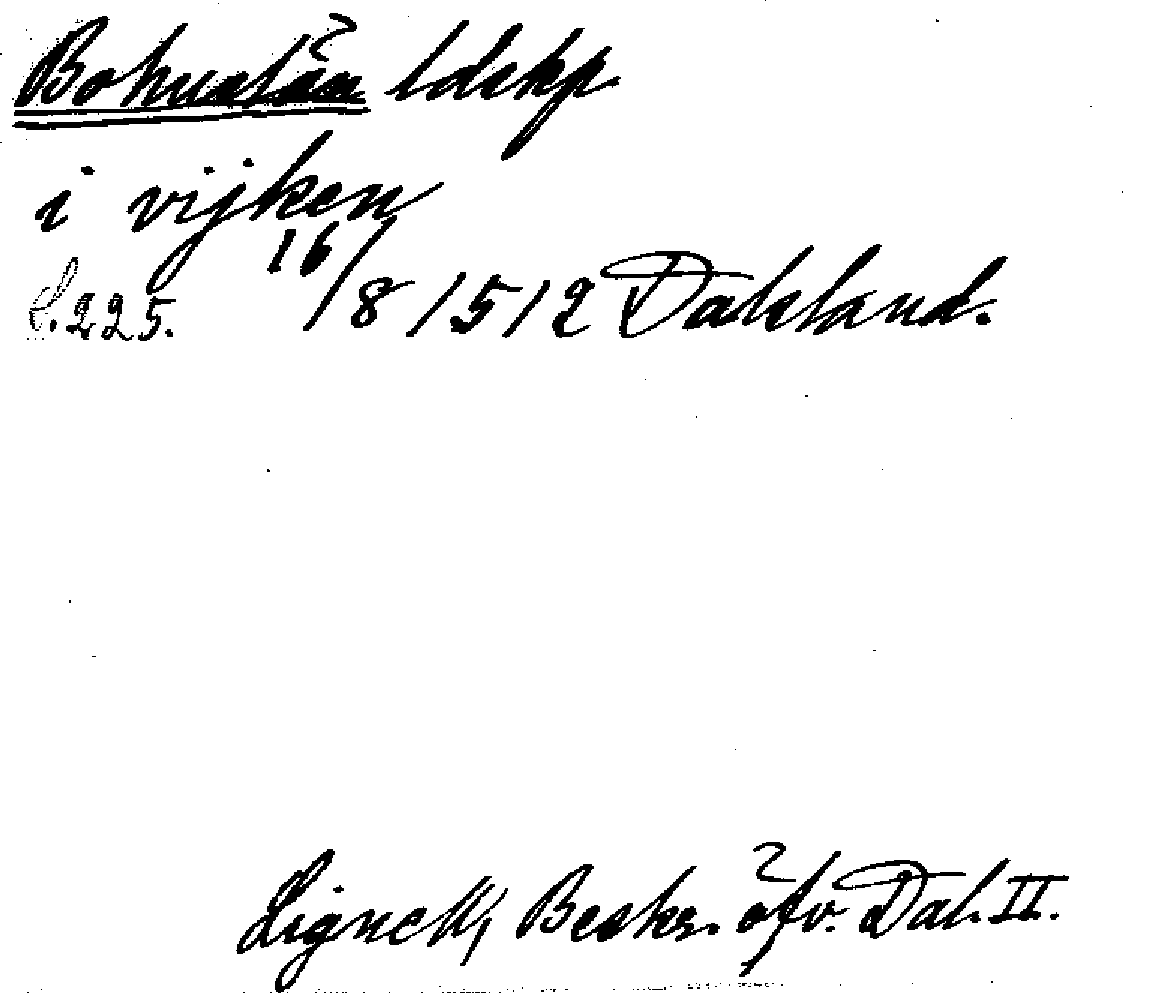 Bohuslän ldskp
i vijken
S. 225. 16/8 1512 Dalsland.
Lignell, Beskr. öfv. Dal. II.